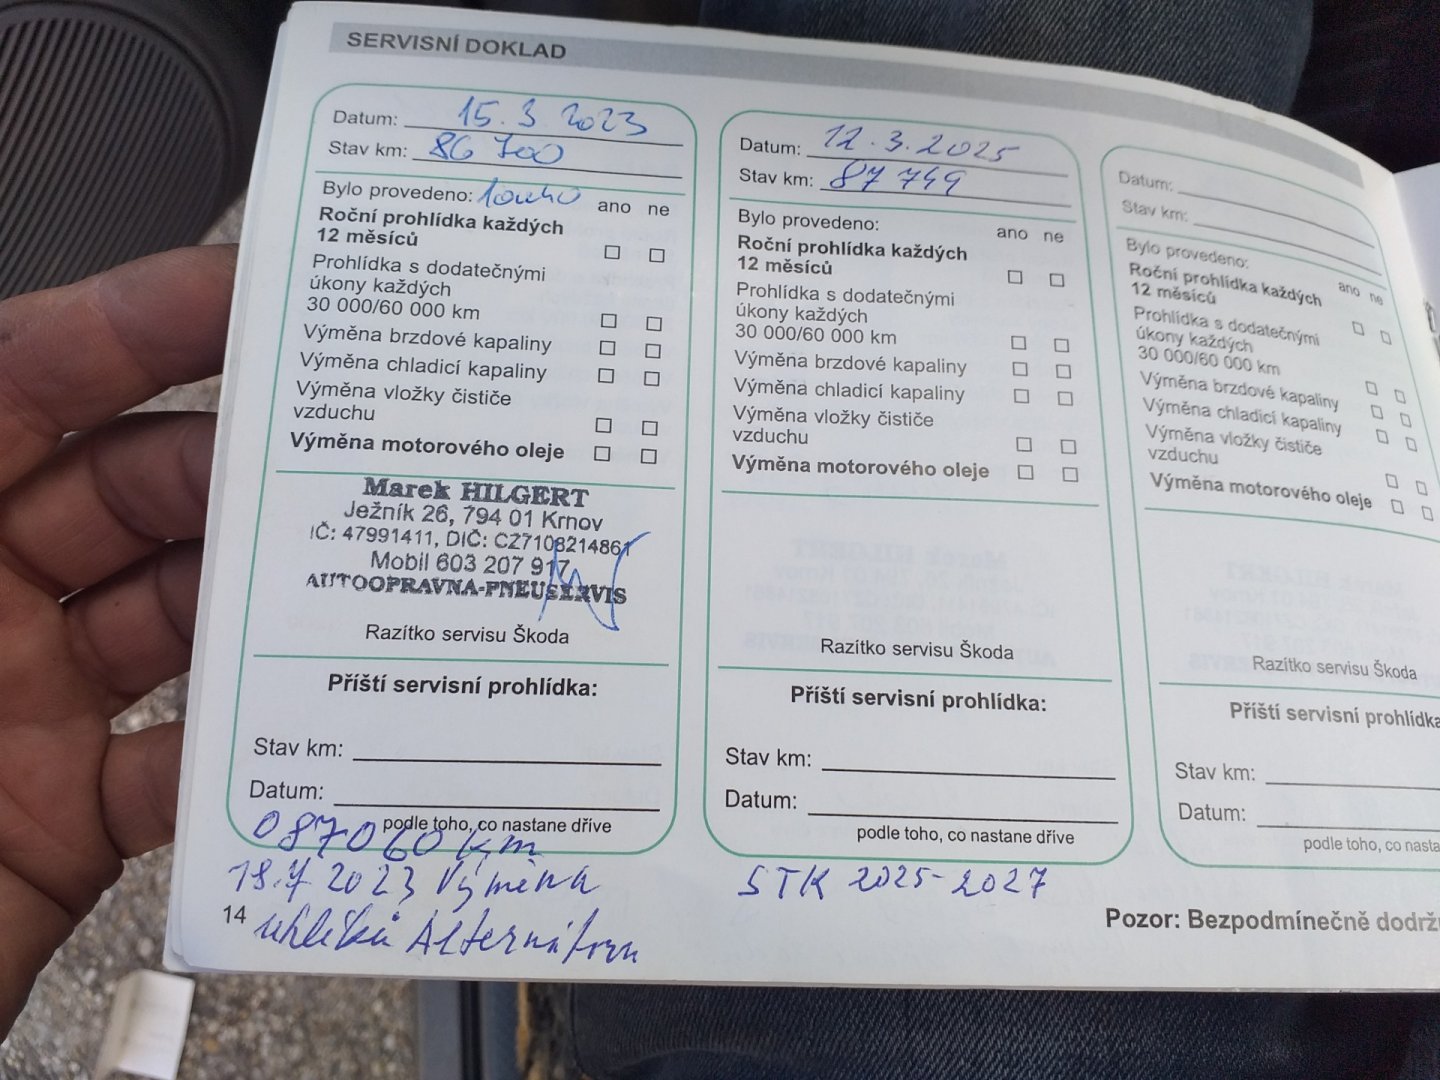 SERVISNÍ DOKLAD
Datum: 15.3 2023
Stav km: 86 700
Bylo provedeno:
ano ne
Roční prohlídka každých
12 měsíců
Prohlídka s dodatečnými
úkony každých
30 000/60 000 km
Výměna brzdové kapaliny
Výměna chladicí kapaliny
Výměna vložky čističe
vzduchu
Výměna motorového oleje
Marek HILGERT
Ježník 26, 794 01 Krnov
IČ: 47991411, DIČ: CZ7108214861
Mobil 603 207 917
AUTOOPRAVNA-PNEUSERVIS
Razítko servisu Škoda
Příští servisní prohlídka:
Stav km:
Datum:
podle toho, co nastane dříve
087060 km
18.7 2023 Výměna
uhlíků Alternátoru
14
Datum: 12.3.2025
Stav km: 87 749
Bylo provedeno:
ano ne
Roční prohlídka každých
12 měsíců
Prohlídka s dodatečnými
úkony každých
30 000/60 000 km
Výměna brzdové kapaliny
Výměna chladicí kapaliny
Výměna vložky čističe
vzduchu
Výměna motorového oleje
Razítko servisu Škoda
Příští servisní prohlídka:
Stav km:
Datum:
podle toho, co nastane dříve
STK 2025-2027
Datum:
Stav km:
Bylo provedeno:
ano ne
Roční prohlídka každých
12 měsíců
Prohlídka s dodatečnými
úkony každých
30 000/60 000 km
Výměna brzdové kapaliny
Výměna chladicí kapaliny
Výměna vložky čističe
vzduchu
Výměna motorového oleje
Razítko servisu Škoda
Příští servisní prohlídka
Stav km:
Datum:
podle toho, co nasta
Pozor: Bezpodmínečně dodržu